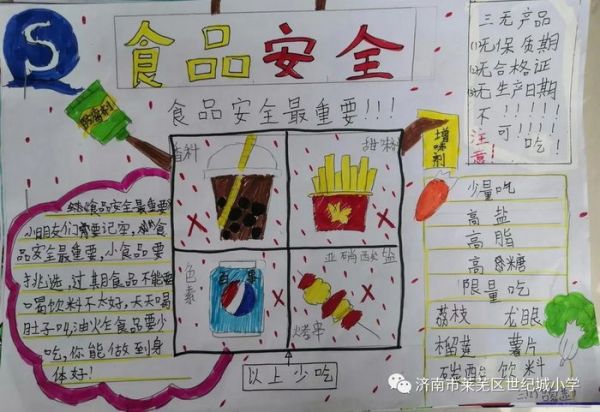 S
食品安全
食品安全最重要!!!
三无产品
(1)无保质期
(2)无合格证
(3)无生产日期
不!!!!!
可!!!吃
注意!
防腐剂
香料
甜味料
色素
亚硝酸盐
烤串
以上少吃
增味剂
食品安全最重要
小朋友们需要记牢,
品安全最重要,小食品要
挑选,过期食品不能要
喝饮料不太好,天天喝
肚子叫,油炸食品要少
吃,你能做到身
体好!
少量吃
高盐
高脂
高糖
限量吃
荔枝 龙眼
榴莲 薯片
碳酸饮料
济南市莱芜区世纪城小学